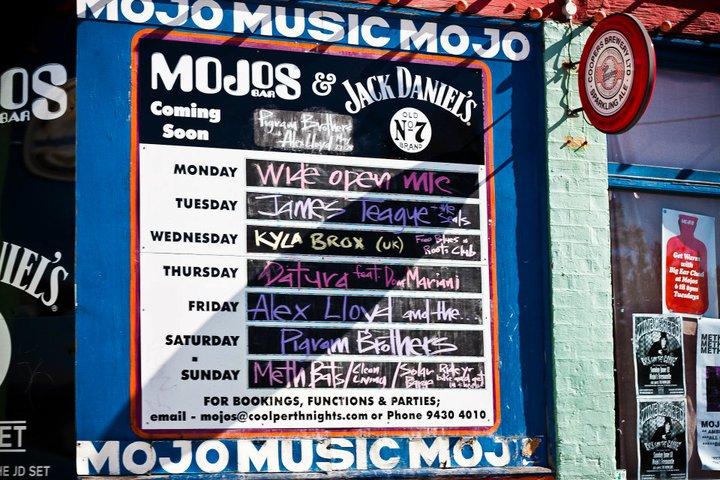 MOJO MUSIC MOJO
MOJOS BAR & JACK DANIEL'S
OLD
No 7
BRAND
Coming Soon
Pigram Brothers
+ Alex Lloyd
MONDAY Wide open mic
TUESDAY James Teague + the Seals
WEDNESDAY KYLA BROX (UK) Free Blues & Roots Club
THURSDAY Datura feat. Dom Mariani
FRIDAY Alex Lloyd and the...
SATURDAY Pigram Brothers
SUNDAY Meth Bats / Clean Living / Solar Barge
FOR BOOKINGS, FUNCTIONS & PARTIES;
email - mojos@coolperthnights.com or Phone 9430 4010
MOJO MUSIC MOJ
OS
BAR
NIEL'S
ET
HE JD SET
COOPERS BREWERY LTD
SPARKLING ALE
Get Warm
with
Big Ear Chad
at Mojos
6 till 8pm
Tuesdays
METH
METH
METH
MOJO